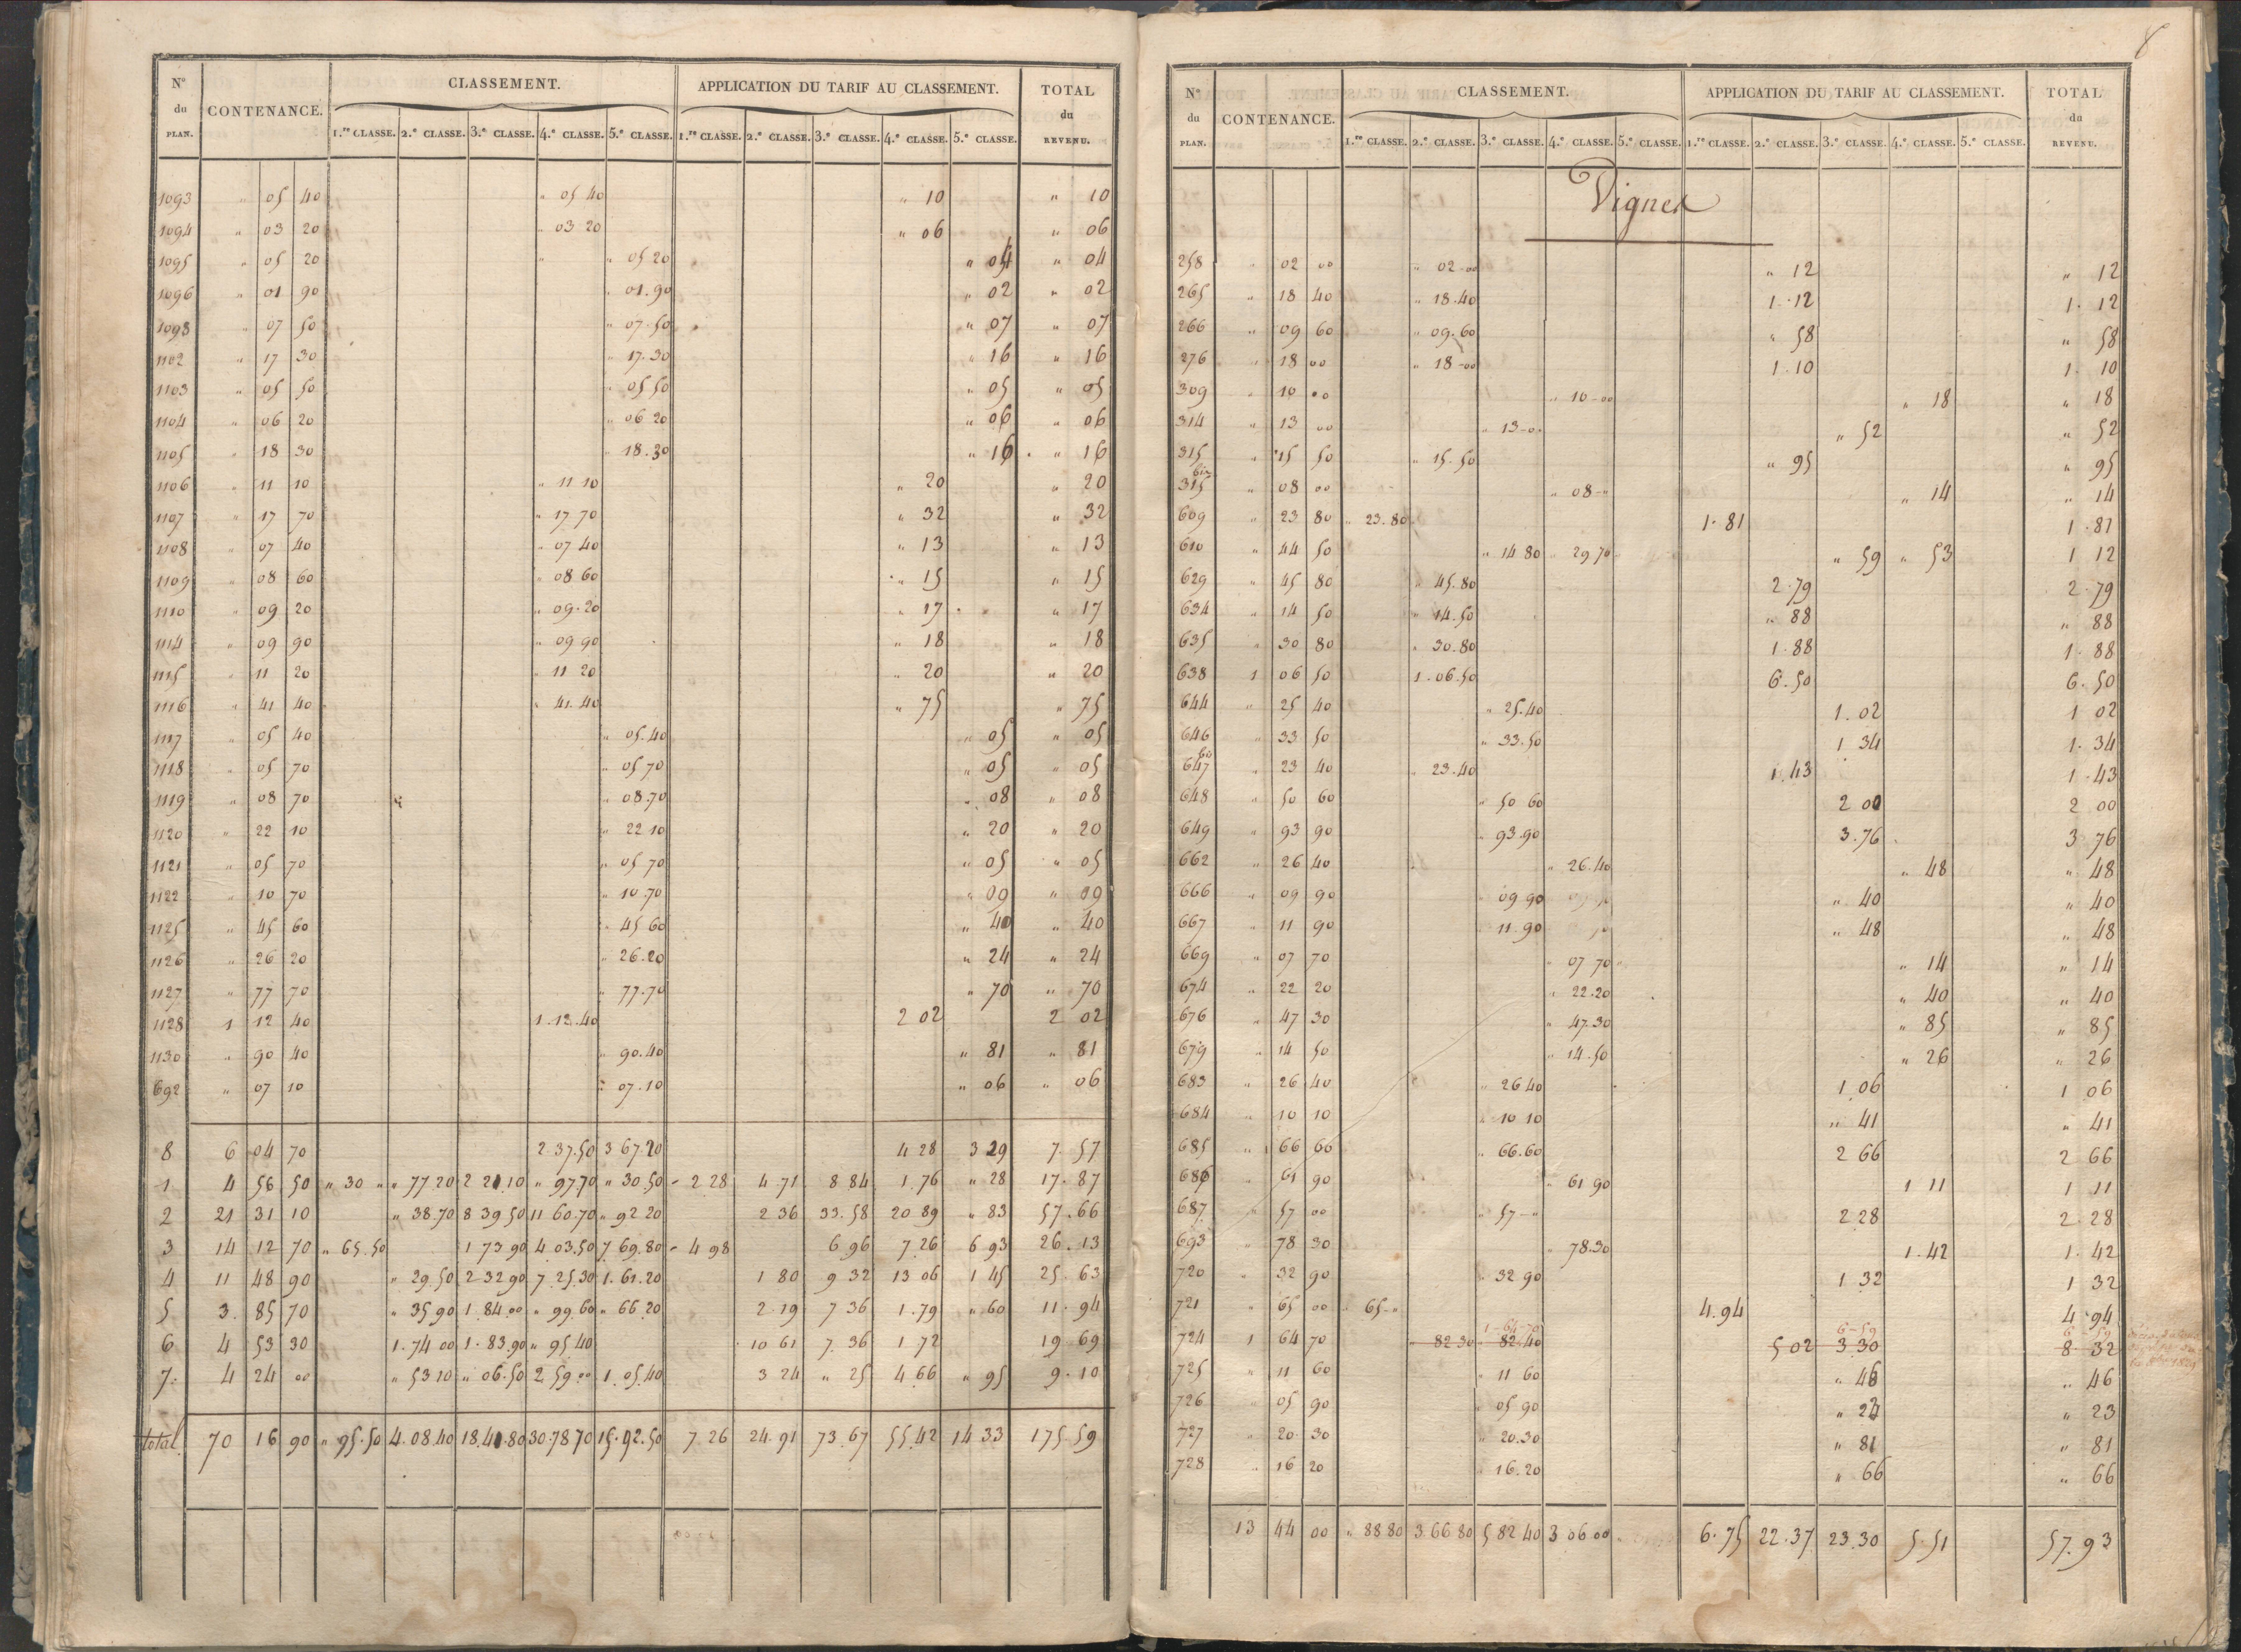 N.o du PLAN. CONTENANCE. CLASSEMENT. APPLICATION DU TARIF AU CLASSEMENT. TOTAL du REVENU.
1.re CLASSE. 2.e CLASSE. 3.e CLASSE. 4.e CLASSE. 5.e CLASSE. 1.re CLASSE. 2.e CLASSE. 3.e CLASSE. 4.e CLASSE. 5.e CLASSE.
1093 " 05 40 " 05 40 " 10 " 10
1094 " 03 20 " 03 20 " 06 " 06
1095 " 05 20 " " 05 20 " 04 " 04
1096 " 01 90 " 01.90 " 02 " 02
1098 " 07 50 " 07.50 " 07 " 07
1102 " 17 30 " 17.30 " 16 " 16
1103 " 05 50 " 05 50 " 05 " 05
1104 " 06 20 " 06 20 " 06 " 06
1105 " 18 30 " 18.30 " 16 " 16
1106 " 11 10 " 11 10 " 20 " 20
1107 " 17 70 " 17.70 " 32 " 32
1108 " 07 40 " 07 40 " 13 " 13
1109 " 08 60 " 08 60 " 15 " 15
1110 " 09 20 " 09.20 " 17 " 17
1114 " 09 90 " 09 90 " 18 " 18
1115 " 11 20 " 11 20 " 20 " 20
1116 " 41 40 " 41.40 " 75 " 75
1117 " 05 40 " 05.40 " 05 " 05
1118 " 05 70 " 05 70 " 05 " 05
1119 " 08 70 " 08.70 " 08 " 08
1120 " 22 10 " 22 10 " 20 " 20
1121 " 05 70 " 05 70 " 05 " 05
1122 " 10 70 " 10.70 " 09 " 09
1125 " 45 60 " 45 60 " 40 " 40
1126 " 26 20 " 26.20 " 24 " 24
1127 " 77 70 " 77.70 " 70 " 70
1128 1 12 40 1.12.40 2 02 2 02
1130 " 90 40 " 90.40 " 81 " 81
692 " 07 10 " 07.10 " 06 " 06
8 6 04 70 2.37.50 3 67.20 4 28 3 29 7.57
1 4 56 50 " 30 " " 77 20 2 21.10 " 97.70 " 30.50 2 28 4.71 8 84 1.76 " 28 17.87
2 21 31 10 " 38.70 8 39 50 11 60.70 " 92 20 2 36 33.58 20 89 " 83 57.66
3 14 12 70 " 65.50 1 73 90 4 03.50 7 69.80 4 98 6 96 7.26 6 93 26.13
4 11 48 90 " 29.50 2 32 90 7 25.30 1.61.20 1 80 9 32 13 06 1 45 25.63
5 3 85 70 " 35 90 1.84.00 " 99.60 " 66.20 2.19 7 36 1.79 " 60 11.94
6 4 53 30 1.74 00 1.83.90 " 95.40 10 61 7 36 1 72 19 69
7 4 24 00 " 53 10 " 06.50 2 59.00 1 05.40 3 24 " 25 4 66 " 95 9.10
total 70 16 90 " 95.50 4.08.40 18.41.80 30.78 70 15.92.50 7.26 24.91 73.67 55.42 14 33 175.59
8
N.o du PLAN. CONTENANCE. CLASSEMENT. APPLICATION DU TARIF AU CLASSEMENT. TOTAL du REVENU.
1.re CLASSE. 2.e CLASSE. 3.e CLASSE. 4.e CLASSE. 5.e CLASSE. 1.re CLASSE. 2.e CLASSE. 3.e CLASSE. 4.e CLASSE. 5.e CLASSE.
Vignes
258 " 02 00 " 02-00 " 12 " 12
265 " 18 40 " 18.40 1.12 1.12
266 " 09 60 " 09.60 " 58 " 58
276 " 18 00 " 18-00 1.10 1.10
309 " 10 00 " 10-00 " 18 " 18
314 " 13 00 " 13-00 " 52 " 52
315 " 15 50 " 15.50 " 95 " 95
315 bis " 08 00 " 08-" " 14 " 14
609 " 23 80 " 23.80 1.81 1.81
610 " 44 50 " 14 80 " 29 70 " 59 " 53 1 12
629 " 45 80 " 45.80 2.79 2.79
634 " 14 50 " 14.50 " 88 " 88
635 " 30 80 " 30.80 1.88 1.88
638 1 06 50 1.06.50 6.50 6.50
644 " 25 40 " 25.40 1.02 1 02
646 " 33 50 " 33.50 1 34 1.34
647 bis " 23 40 " 23.40 1.43 1.43
648 " 50 60 " 50 60 2 00 2 00
649 " 93 90 " 93.90 3.76 3 76
662 " 26 40 " 26.40 " 48 " 48
666 " 09 90 09 90 " 40 " 40
667 " 11 90 11.90 " 48 " 48
669 " 07 70 " 07 70 " 14 " 14
674 " 22 20 " 22.20 " 40 " 40
676 " 47 30 " 47.30 " 85 " 85
679 " 14 50 " 14.50 " 26 " 26
683 " 26 40 " 26 40 1 06 1 06
684 " 10 10 " 10 10 " 41 " 41
685 " 66 60 " 66.60 2 66 2 66
686 " 61 90 " 61 90 1 11 1 11
687 " 57 00 " 57-" 2 28 2.28
693 " 78 30 " 78.30 1.42 1.42
720 " 32 90 " 32 90 1 32 1 32
721 " 65 00 " 65-" 4.94 4.94
1-64-70 6-59 6 59
724 1 64 70 " 82 30 " 82.40 5 02 3.30 8.32
725 " 11 60 " 11 60 " 46 " 46
726 " 05 90 " 05 90 " 23 " 23
727 " 20 30 " 20.30 " 81 " 81
728 " 16 20 " 16.20 " 66 " 66
13 44 00 " 88 80 3 66 80 5 82 40 3 06 00 6.75 22.37 23.30 5.51 57.93